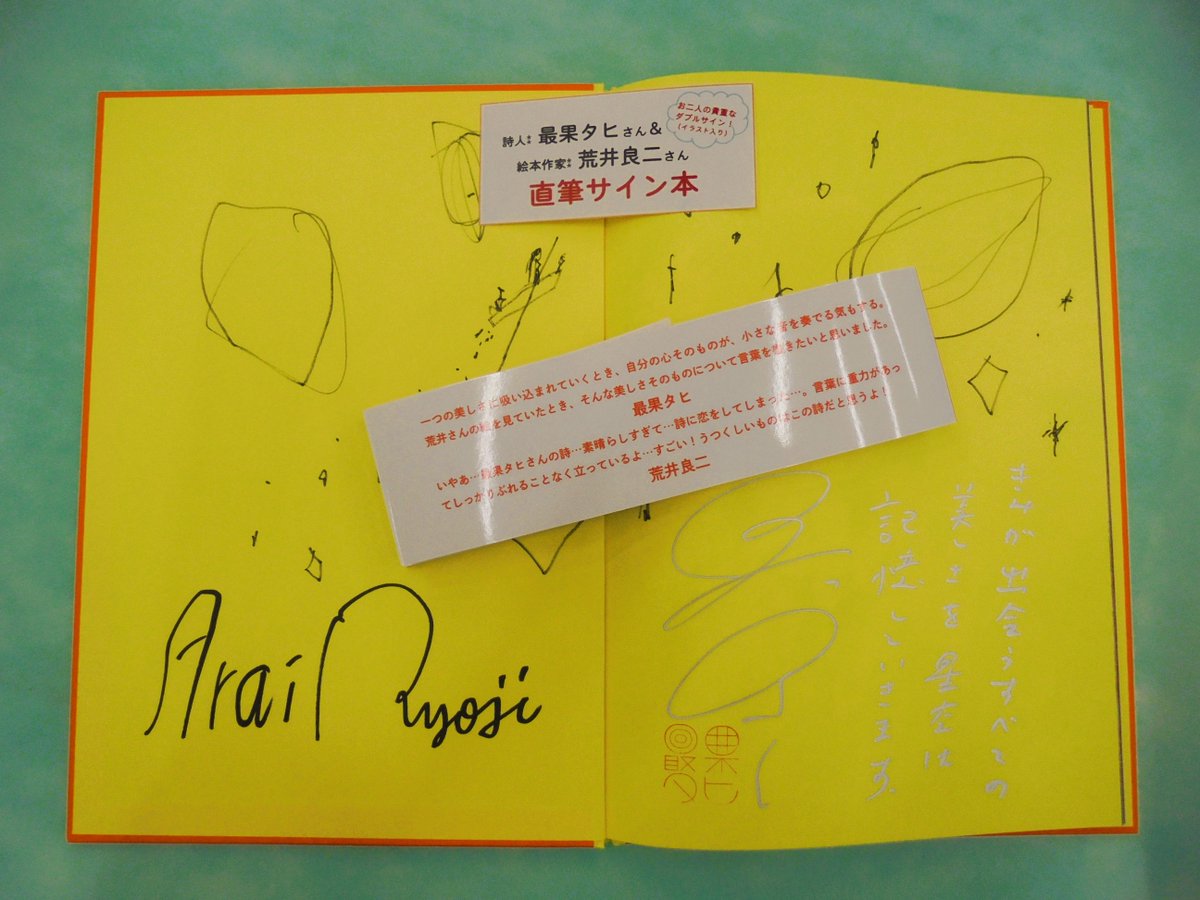 詩人 最果タヒさん&
絵本作家 荒井良二さん
直筆サイン本
お二人の貴重な
ダブルサイン!
(イラスト入り)
一つの美しさに吸い込まれていくとき、自分の心そのものが、小さな音を奏でる気もする。
荒井さんの絵を見ていたとき、そんな美しさそのものについて言葉を書きたいと思いました。
最果タヒ
いやあ…最果タヒさんの詩…素晴らしすぎて…詩に恋をしてしまった…。言葉に重力があっ
てしっかりぶれることなく立っているよ…すごい!うつくしいものはこの詩だと思うよ!
荒井良二
Arai Ryoji
きみが出会うすべての
美しさを星空は
記憶しています。
最果タヒ